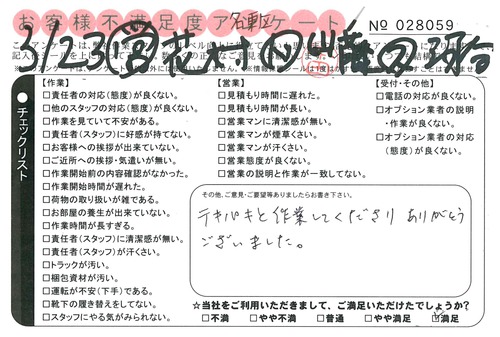 お客様不満足度アンケート
№ 028059
3/23
チェックリスト
【作業】
□責任者の対応(態度)が良くない。
□他のスタッフの対応(態度)が良くない。
□作業を見ていて不安がある。
□責任者(スタッフ)に好感が持てない。
□お客様への挨拶が出来ていない。
□ご近所への挨拶・気遣いが無い。
□作業開始前の内容確認がなかった。
□作業開始時間が遅れた。
□荷物の取り扱いが雑である。
□お部屋の養生が出来ていない。
□作業時間が長すぎる。
□責任者(スタッフ)に清潔感が無い。
□責任者(スタッフ)が汗くさい。
□トラックが汚い。
□梱包資材が汚い。
□運転が不安(下手)である。
□靴下の履き替えをしてない。
□スタッフにやる気がみられない。
【営業】
□見積もり時間に遅れた。
□見積もり時間が長い。
□営業マンに清潔感が無い。
□営業マンが煙草くさい。
□営業マンが汗くさい。
□営業態度が良くない。
□営業の説明と作業が一致してない。
【受付・その他】
□電話の対応が良くない。
□オプション業者の説明
・作業が良くない。
□オプション業者の対応
(態度)が良くない。
その他、ご意見・ご要望等ありましたらお書き下さい。
テキパキと作業してくださり ありがとう
ございました。
☆当社をご利用いただきまして、ご満足いただけたでしょうか?
□不満 □やや不満 □普通 □やや満足 □満足